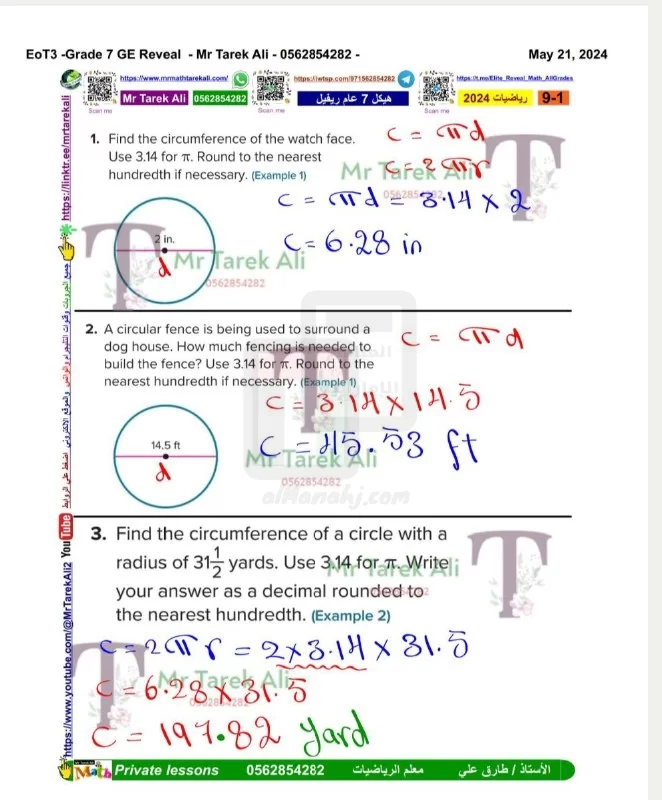 EoT3 -Grade 7 GE Reveal - Mr Tarek Ali - 0562854282 -
May 21, 2024
https://www.mrmathtarekali.com/
https://iwtsp.com/971562854282
https://t.me/Elite_Reveal_Math_AllGrades
Mr Tarek Ali
0562854282
هيكل 7 عام ريفيل
رياضيات 2024
9-1
Scan me
Scan me
Scan me
1. Find the circumference of the watch face.
Use 3.14 for π. Round to the nearest
hundredth if necessary. (Example 1)
C = πd
C = 2πr
Mr Tarek Ali
C = πd = 3.14 × 2
C = 6.28 in
2 in.
d
Mr Tarek Ali
0562854282
2. A circular fence is being used to surround a
dog house. How much fencing is needed to
build the fence? Use 3.14 for π. Round to the
nearest hundredth if necessary. (Example 1)
C = πd
C = 3.14 × 14.5
C = 45.53 ft
14.5 ft
d
Mr Tarek Ali
0562854282
almanahj.com
3. Find the circumference of a circle with a
radius of 31 1/2 yards. Use 3.14 for π. Write
your answer as a decimal rounded to
the nearest hundredth. (Example 2)
Mr Tarek Ali
C = 2πr = 2 × 3.14 × 31.5
Mr Tarek Ali
C = 6.28 × 31.5
C = 197.82 yard
https://linktr.ee/mrtarekali
https://www.youtube.com/@MrTarekAli2 YouTube
Math
Private lessons
0562854282
معلم الرياضيات
الأستاذ / طارق علي